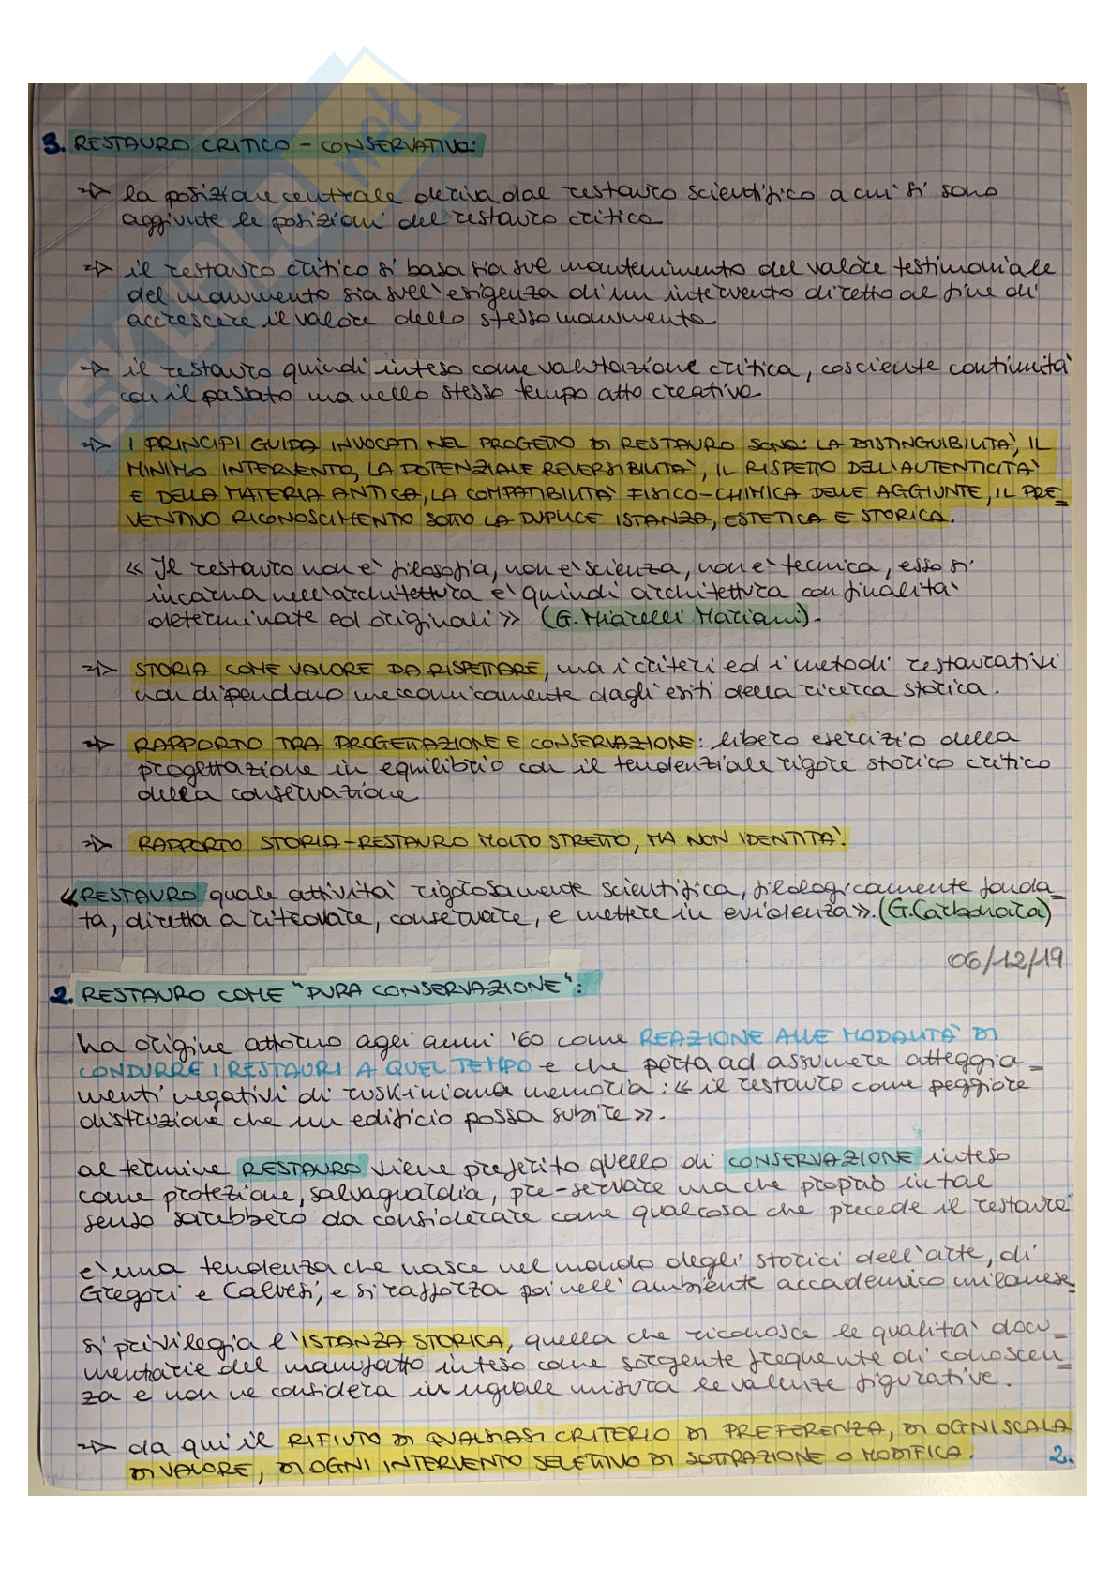 3. RESTAURO CRITICO - CONSERVATIVO:
la posizione centrale deriva dal restauro scientifico a cui si sono
aggiunte le posizioni del restauro critico
il restauro critico si basa sia sul mantenimento del valore testimoniale
del monumento sia sull'esigenza di un intervento diretto al fine di
accrescere il valore dello stesso monumento
il restauro quindi inteso come valutazione critica, cosciente continuità
con il passato ma nello stesso tempo atto creativo.
I PRINCIPI GUIDA INVOCATI NEL PROGETTO DI RESTAURO SONO: LA DISTINGUIBILITA', IL
MINIMO INTERVENTO, LA POTENZIALE REVERSIBILITA', IL RISPETTO DELL'AUTENTICITA'
E DELLA MATERIA ANTICA, LA COMPATIBILITA' FISICO-CHIMICA DELLE AGGIUNTE, IL PRE_
VENTIVO RICONOSCIMENTO SOTTO LA DUPLICE ISTANZA, ESTETICA E STORICA.
« Il restauro non e' filosofia, non e' scienza, non e' tecnica, esso si
incarna nell'architettura e' quindi architettura con finalita'
determinate ed originali » (G. Miarelli Mariani).
STORIA COME VALORE DA RISPETTARE, ma i criteri ed i metodi restaurativi
non dipendano meccanicamente dagli esiti della ricerca storica.
RAPPORTO TRA PROGETTAZIONE E CONSERVAZIONE: libero esercizio della
progettazione in equilibrio con il tendenziale rigore storico critico
della conservazione
RAPPORTO STORIA-RESTAURO MOLTO STRETTO, MA NON IDENTITA'.
«RESTAURO quale attivita' rigorosamente scientifica, filologicamente fonda_
ta, diretta a ritrovare, conservare, e mettere in evidenza». (G. Carbonara)
06/12/19
2. RESTAURO COME "PURA CONSERVAZIONE":
ha origine attorno agli anni '60 come REAZIONE ALLE MODALITA' DI
CONDURRE I RESTAURI A QUEL TEMPO e che porta ad assumere atteggia_
menti negativi di ruskiniana memoria: « il restauro come peggiore
distruzione che un edificio possa subire ».
al termine RESTAURO viene preferito quello di CONSERVAZIONE inteso
come protezione, salvaguardia, pre-servare ma che proprio in tal
senso sarebbero da considerare come qualcosa che precede il restauro
e' una tendenza che nasce nel mondo degli storici dell'arte, di
Gregori e Calvesi, e si rafforza poi nell'ambiente accademico milanese.
si privilegia l'ISTANZA STORICA, quella che riconosce le qualita' docu_
mentarie del manufatto inteso come sorgente frequente di conoscen_
za e non ne considera in uguale misura le valenze figurative.
da qui il RIFIUTO DI QUALSIASI CRITERIO DI PREFERENZA, DI OGNI SCALA
DI VALORE, DI OGNI INTERVENTO SELETTIVO DI SOTTRAZIONE O MODIFICA.
2.